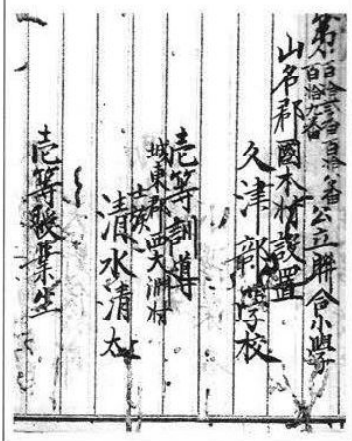 第百拾弐番百拾八番百拾九番公立聯合小學
山名郡國本村設置
久津部學校
壱等訓導
城東郡西大渕村
士族
清水清太
壱等授業生